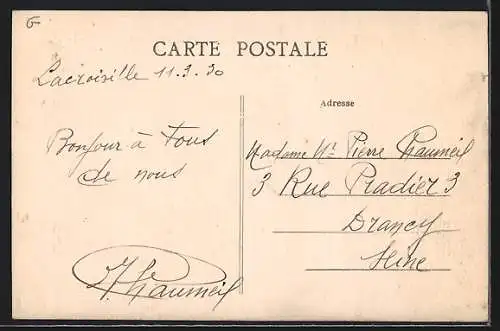 CARTE POSTALE
Lacroisille 11.3.30
Adresse
Bonjour à Tous
de nous
Chaumeil
Madame Pierre Chaumeil
3 Rue Pradier 3
Drancy
Seine